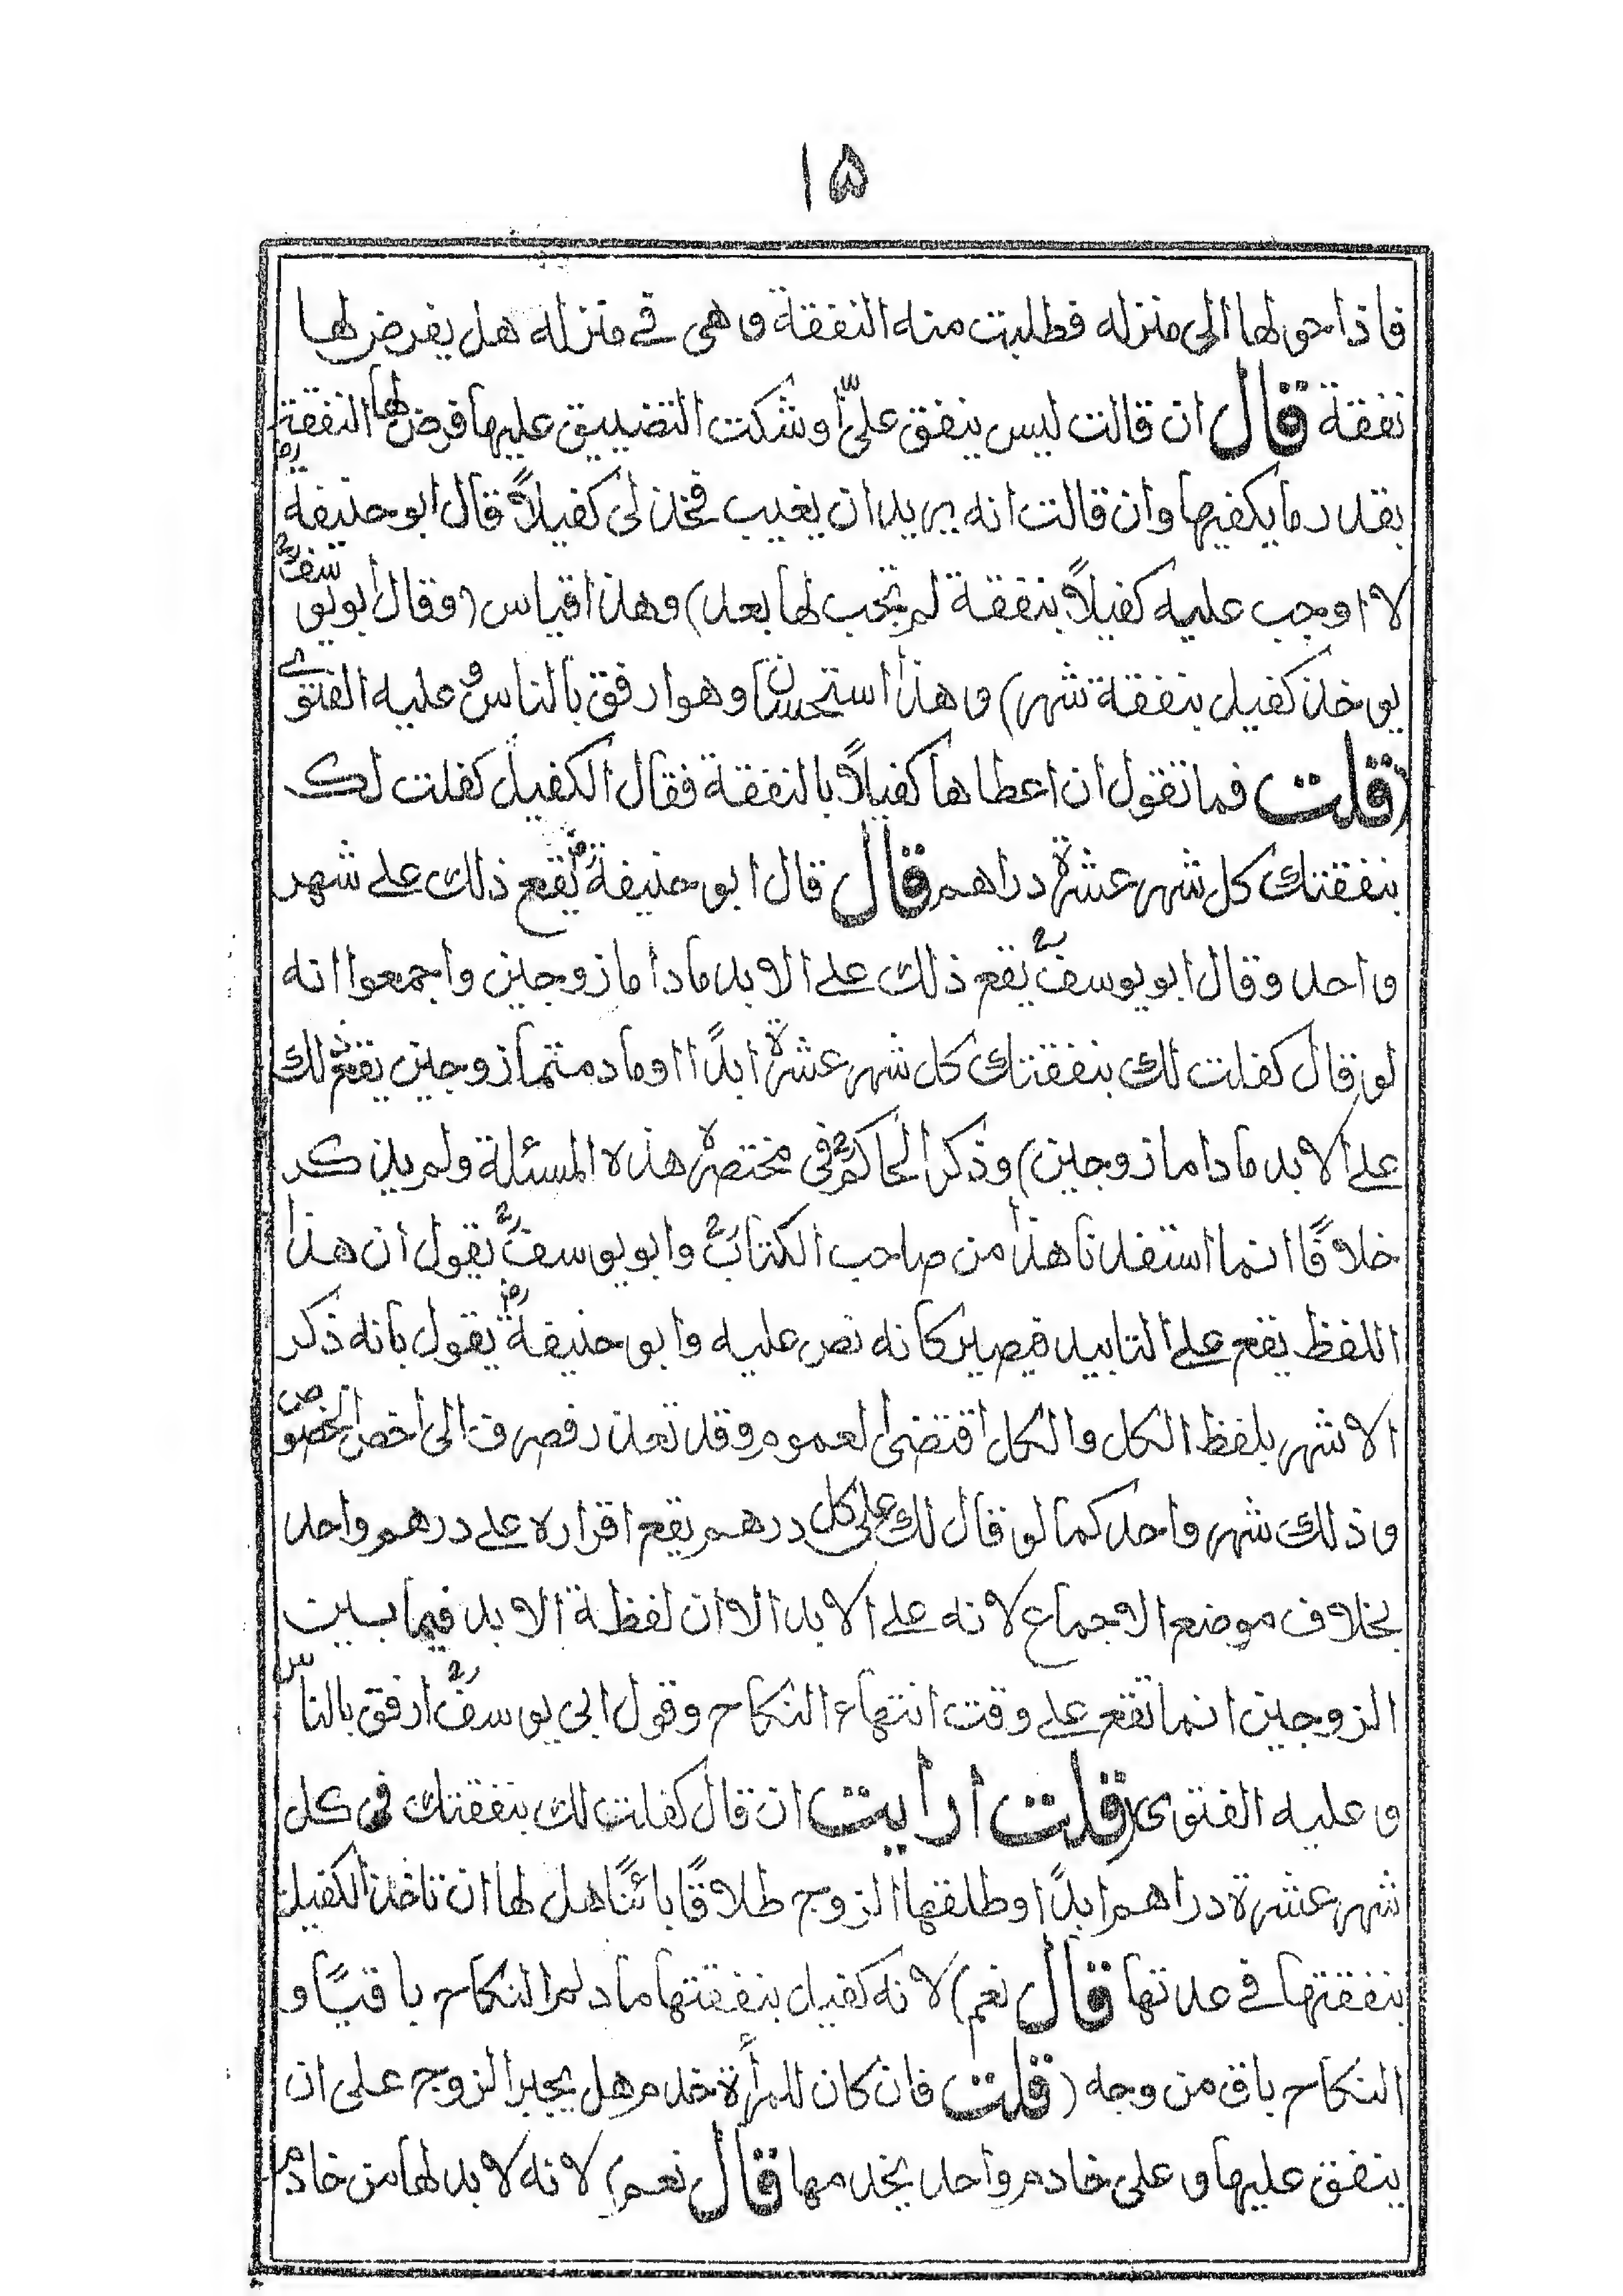 ١٥
فاذا حولها الى منزله فطلبت منه النفقة وهى فى منزله هل يفرض لها
نفقة قال ان قالت ليس ينفق علىّ اوشكت التضييق عليها فرض لها النفقة
بقدر ما يكفيها وان قالت انه يريد ان يغيب فخذ لى كفيلاً قال ابو حنيفةؒ
لا اوجب عليه كفيلاً بنفقة لم تجب لها بعد) وهذا قياس (وقال ابو يوسفؒ
يوخذ كفيل بنفقة شهر) وهذا استحسان وهو ارفق بالناس وعليه الفتوى
(قلت فما تقول ان اعطاها كفيلاً بالنفقة فقال الكفيل كفلت لك
بنفقتك كل شهر عشرة دراهم قال قال ابو حنيفةؒ يقع ذلك على شهر
واحد وقال ابو يوسفؒ يقع ذلك على الابد ما داما زوجين واجمعوا انه
لو قال كفلت لك بنفقتك كل شهر عشرة ابدًا اوما دمتما زوجين يقع ذلك
على الابد ما داما زوجين) وذكر الحاكمؒ فى مختصره هذه المسئلة ولم يذكر
خلافًا انما استفدنا هذا من صاحب الكتابؒ وابو يوسفؒ يقول ان هذا
اللفظ يقع على التابيد فيصير كانه نص عليه وابو حنيفةؒ يقول بانه ذكر
الاشهر بلفظ الكل والكل اقتضى العموم وقد تعذر فصرف الى اخص الخصوص
وذلك شهر واحد كما لو قال لك على كل درهم يقع اقراره على درهم واحد
بخلاف موضع الاجماع لانه على الابد الا ان لفظة الابد فيما بين
الزوجين انما تقع على وقت انتهاء النكاح وقول ابى يوسفؒ ارفق بالناس
وعليه الفتوى (قلت ارايت ان قال كفلت لك بنفقتك فى كل
شهر عشرة دراهم ابدًا وطلقها الزوج طلاقًا بائنًا هل لها ان تاخذ الكفيل
بنفقتها فى عدتها قال نعم) لانه كفيل بنفقتها ما دام النكاح باقيًا و
النكاح باق من وجه (قلت فان كان للمرأة خدم هل يجبر الزوج على ان
ينفق عليها وعلى خادم واحد يخدمها قال نعم) لانه لا بد لها من خادم